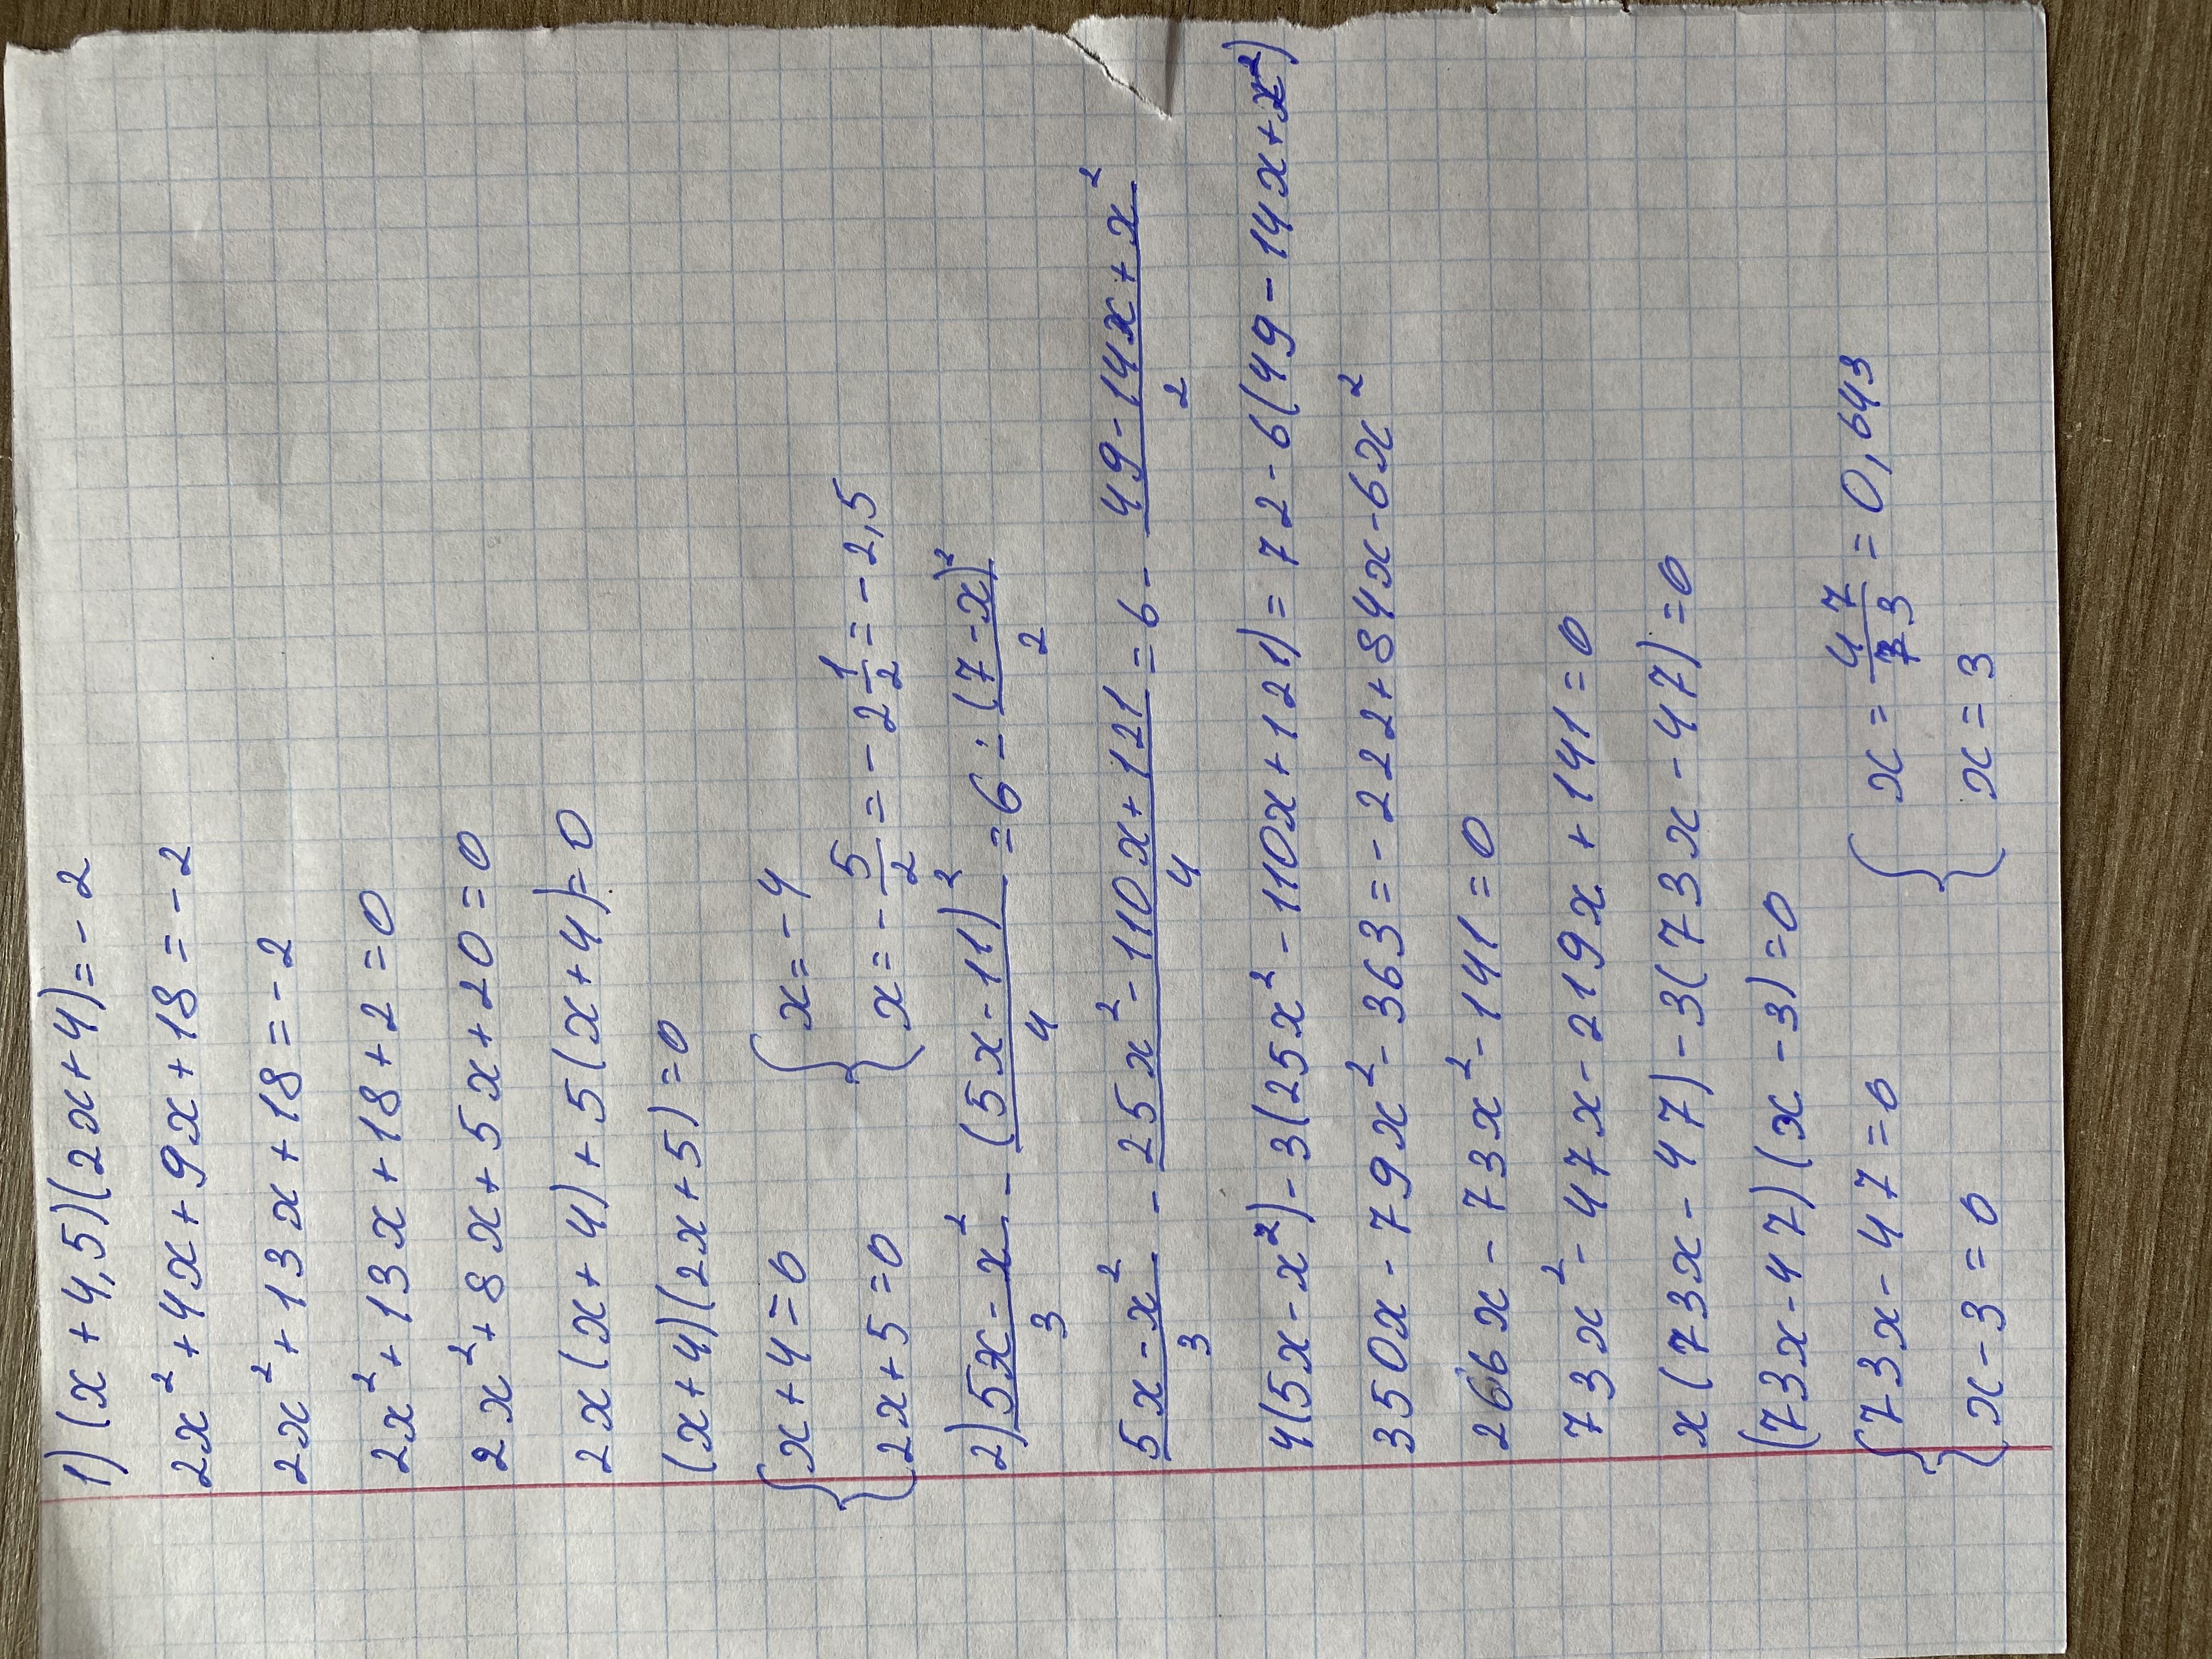 1) (x+4,5)(2x+4)=-2
2x²+4x+9x+18=-2
2x²+13x+18=-2
2x²+13x+18+2=0
2x²+8x+5x+20=0
2x(x+4)+5(x+4)=0
(x+4)(2x+5)=0
{x+4=0 {x=-4
{2x+5=0 {x=-5/2=-2 1/2=-2,5
2) (5x-x²)/3 - (5x-11)²/4 = 6 - (7-x)²/2
(5x-x²)/3 - (25x²-110x+121)/4 = 6 - (49-14x+x²)/2
4(5x-x²)-3(25x²-110x+121)=72-6(49-14x+x²)
350x-79x²-363=-222+84x-6x²
266x-73x²-141=0
73x²-47x-219x+141=0
x(73x-47)-3(73x-47)=0
(73x-47)(x-3)=0
{73x-47=0 {x=47/73=0,643
{x-3=0 {x=3